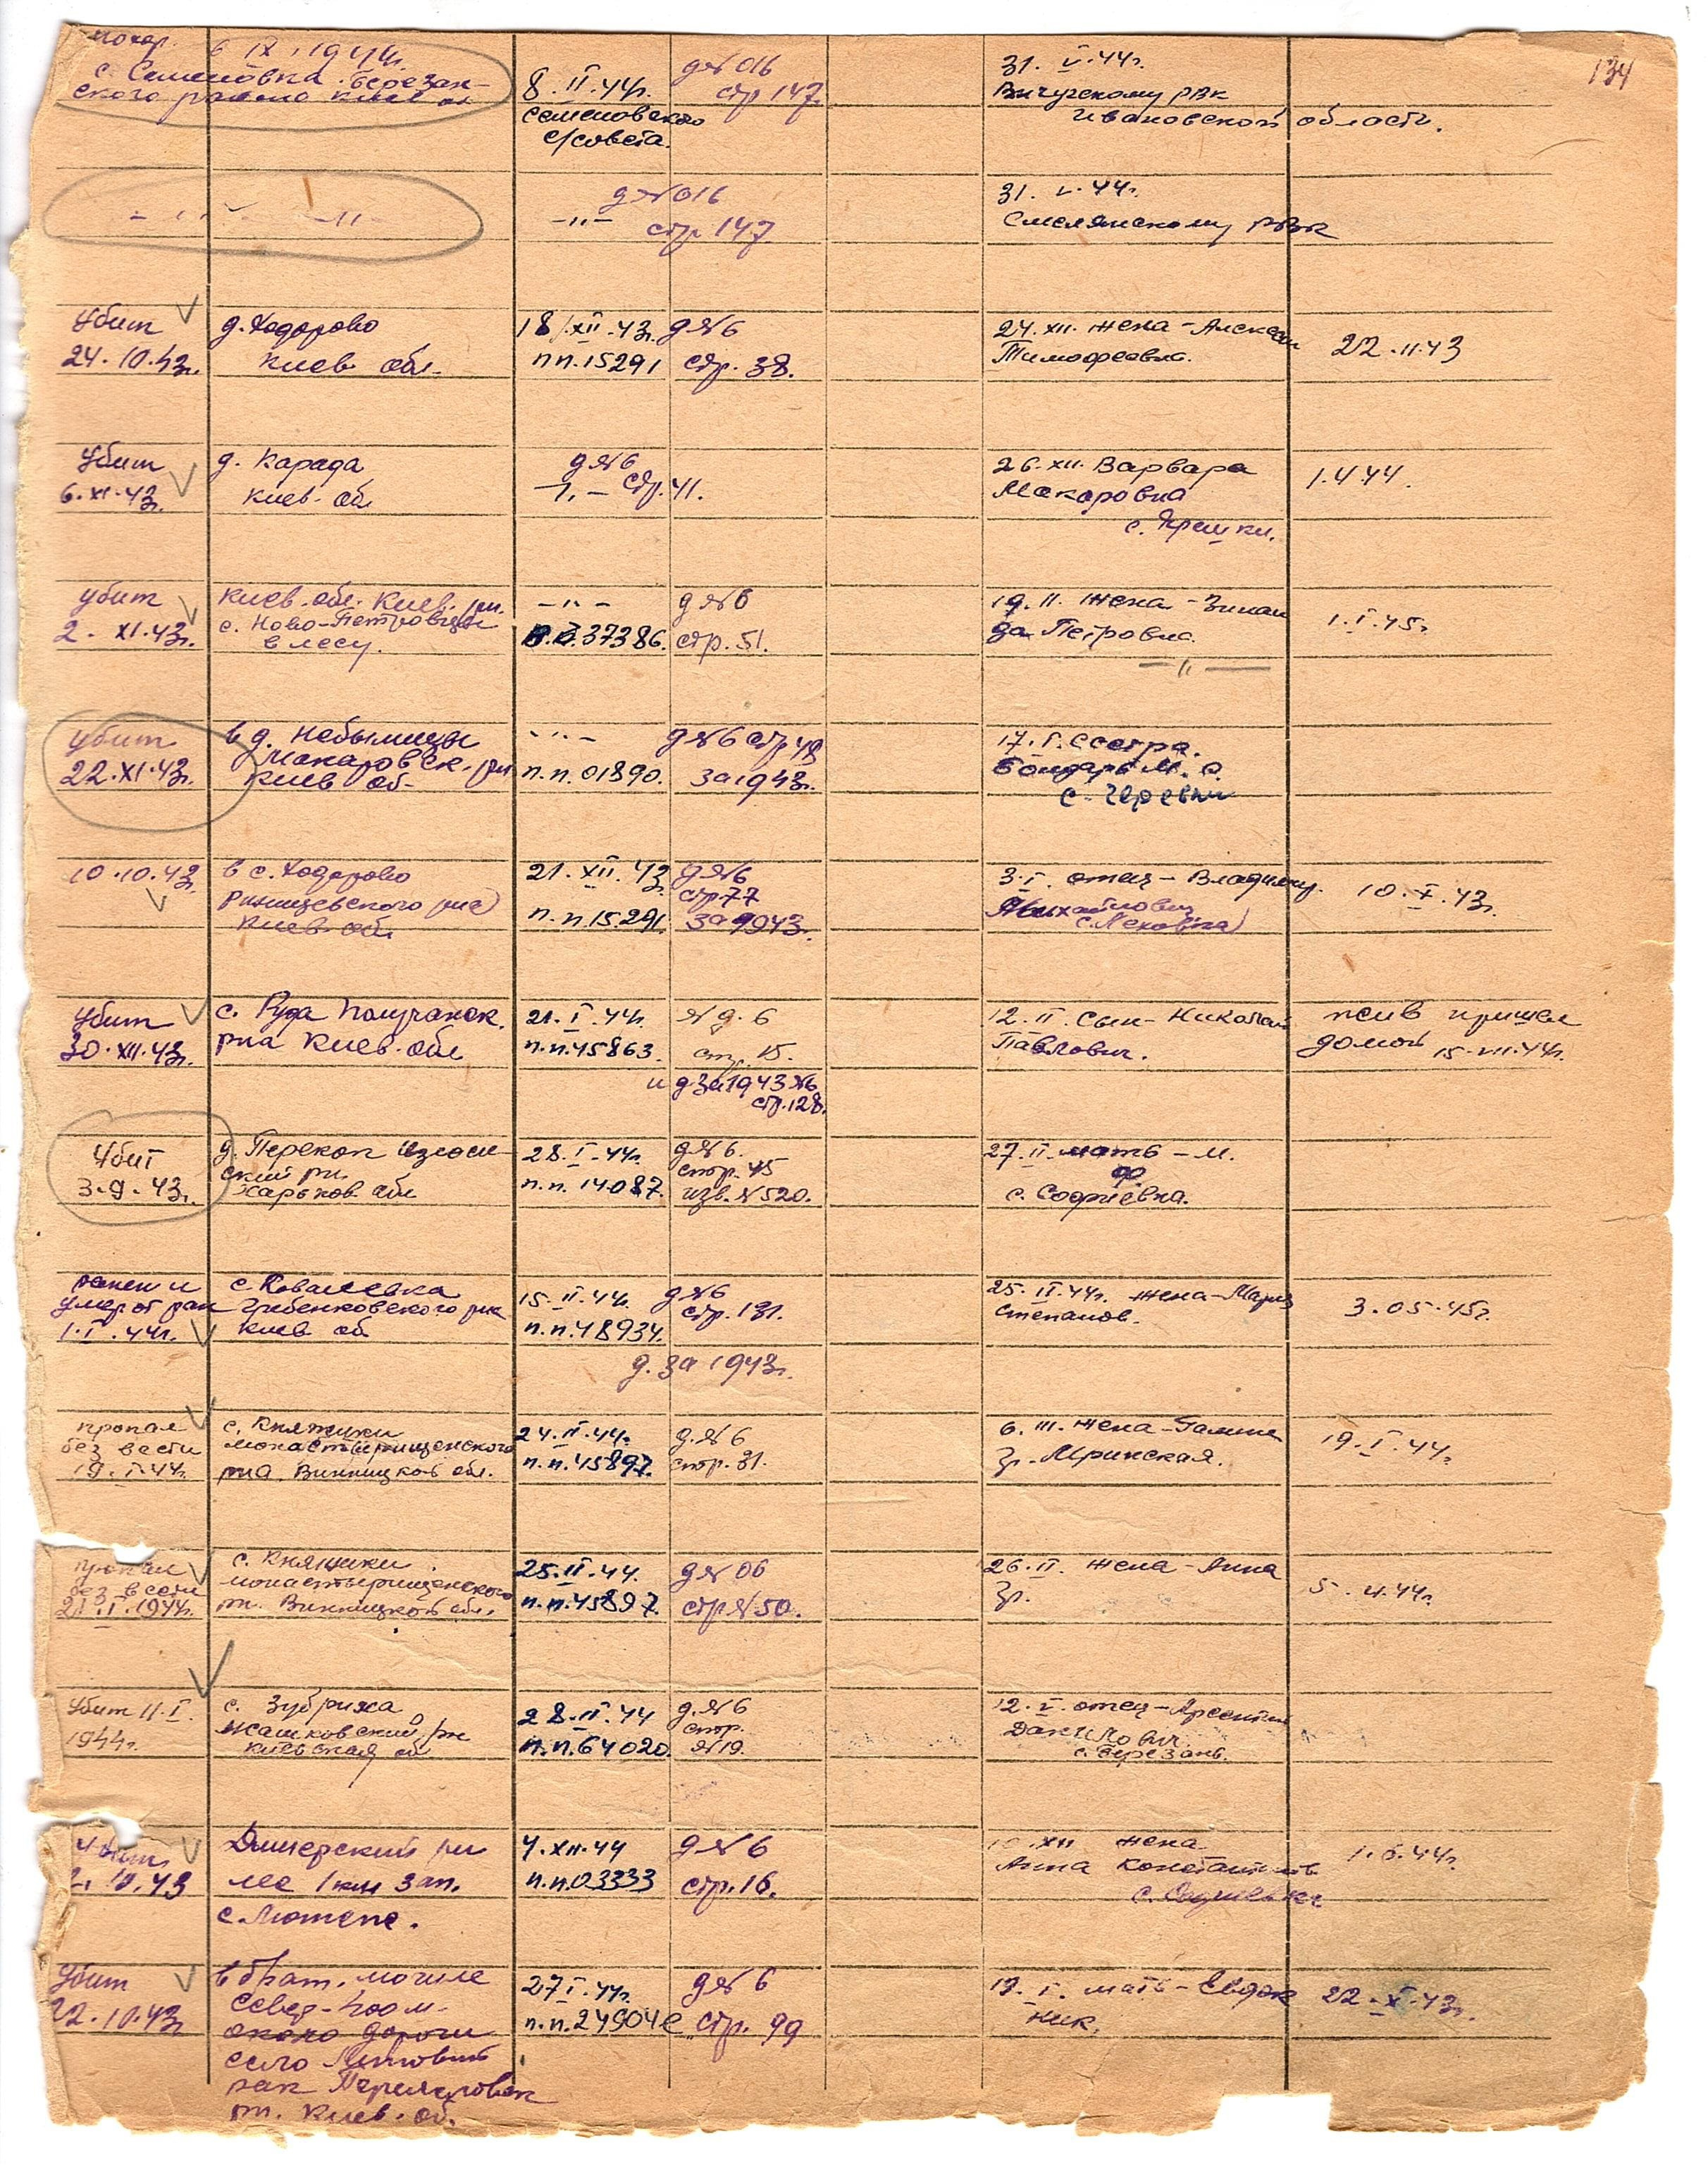 134
похор. 6 IX. 1944г.
с. Семеновка Березан-
ского района Киев об
8. II. 44г.
Семеновского
с/совета.
д №016
стр 147
31. V. 44г.
Вичугскому РВК
Ивановской области.
— 〃 — — 〃 —
— 〃 —
д №016
стр 147
31. V. 44г.
Смелянскому РВК
Убит
24. 10. 43г.
д. Ходорово
Киев обл.
18/XII. 43г.
п п. 15291
д №6
стр. 38.
24. XII. жена -
Тимофеевна.
22. 11. 43
Убит
6. XI. 43г.
д. Карада
Киев. об
— 〃 —
д №6
стр. 41.
26. XII. Варвара
Макаровна
1. 4 44.
убит
2. XI. 43г.
Киев. обл. Киев. рн.
с. Ново-Петровцы
в лесу.
— 〃 —
37386.
д №6
стр. 51.
19. II. жена - Зинаи
да Петровна.
— 〃 —
1. I. 45г
убит
22. XI. 43г.
в д. Небылицы
Макаровск. рн
Киев об-
— 〃 —
п. п. 01890.
д №6 стр 48
за 1943г.
17. I. Сестра.
Бондарь М. С.
10. 10. 43г.
в с. Ходорово
Ржищевского рна
Киев. обл
21. XII. 43г
п. п. 15.291.
д №6
стр 77
за 1943г.
3. I. отец - Владимир.
Михайлович
10. X. 43г.
Убит
30. XII. 43г.
с. Руда
рна Киев. обл
21. I. 44г.
п. п. 45863.
№ д. 6
стр. 15.
и д за 1943 №6
стр. 128.
12. II. Сын - Николай
Павлович.
жив пришел
домой 15. VII. 44г.
Убит
3. 9. 43г.
д. Перекоп
ский рн.
Харьков обл
28. I. 44г.
п. п. 14087.
д №6.
стор. 45
изв. №520.
27. II. мать - М.
Ф
с. Софиевка.
ранен и
умер от ран
1. I. 44г.
с. Ковалевка
Гребенковского рна
Киев об
15. II. 44г.
п. п. 48934.
д №6
стр. 131.
д. за 1943г.
25. II. 44г. жена - Мария
Степанов.
3. 05. 45г.
пропал
без вести
19. I. 44г.
с. Княжики
Монастырищенского
рна Винницкой обл.
24. II. 44г.
п. п. 45897.
д. №6
стор. 31.
6. III. жена - Галина
Гр. Мринская.
19. I. 44г.
пропал
без вести
21. I. 1944г.
с. Княжики
Монастырищенского
рн. Винницкой обл.
25. II. 44.
п. п. 45897.
д № 06
стр №50.
26. II. жена - Анна
Гр.
5. 4. 44г.
Убит 11. I.
1944г.
с. Зубриха
Жашковский рн
Киевская об
28. II. 44
п. п. 64020.
д. №6
стор.
№19.
12. V. отец - Арсентий
Данилович.
с. Березань.
Убит
2. 10. 43
Дымерский рн
лес 1 км зап.
с. Лютеж.
4. XII. 44
п. п. 03333
д №6
стр. 16.
XII жена
Анна Константинов
1. 6. 44г.
Убит
22. 10. 43г
в брат. могиле
север-
около дороги
село
рн. Киев. об.
27 I. 44г.
п. п. 24904е
д №6
стр. 99
19. I. мать - Евдок
Ник.
22. X. 43г.